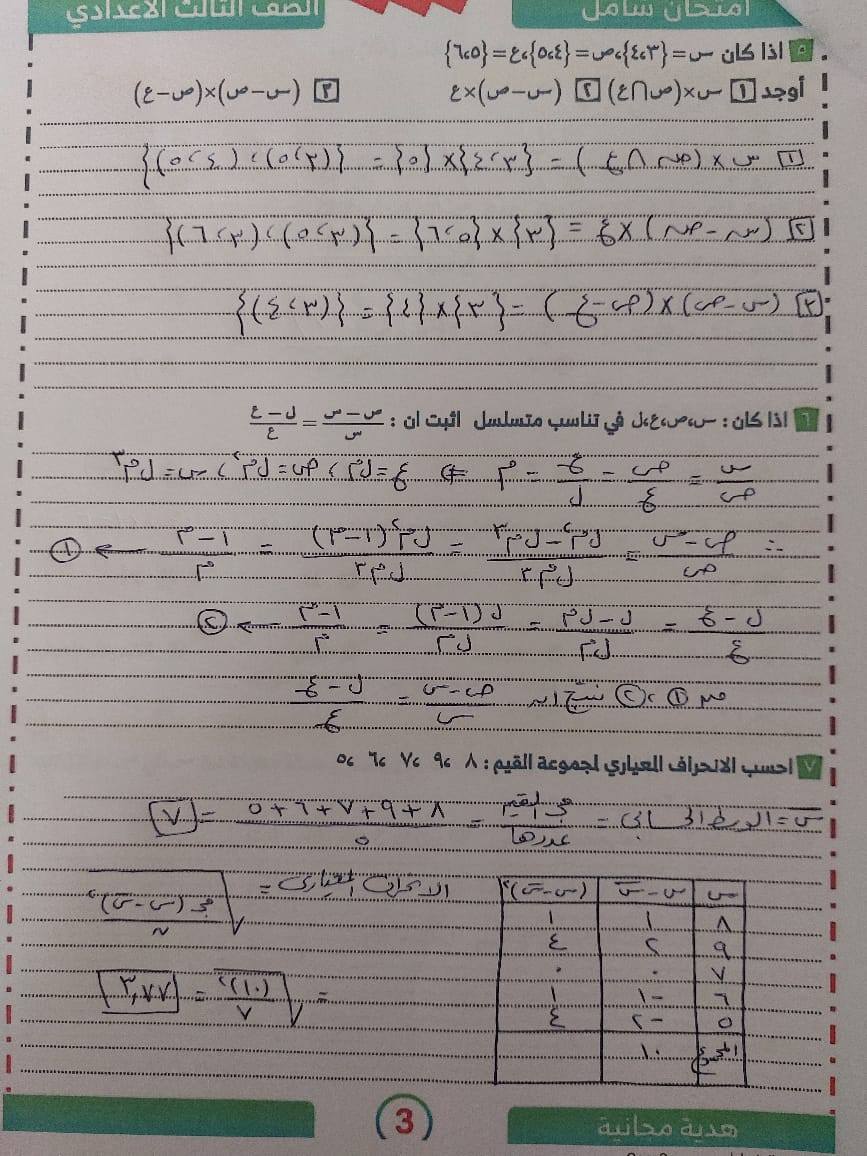 امتحان شامل
الصف الثالث الاعدادي
٥ اذا كان س={٤،٣}،ص={٥،٤}،ع={٦،٥}
أوجد ١ س×(ص∩ع) ٢ (س-ص)×ع ٣ (س-ص)×(ص-ع)
١ س × (ص ∩ ع) = {٣،٤}×{٥} = {(٣،٥)،(٤،٥)}
٢ (س-ص)×ع = {٣}×{٥،٦} = {(٣،٥)،(٣،٦)}
٣ (س-ص)×(ص-ع) = {٣}×{٤} = {(٣،٤)}
٦ اذا كان : س،ص،ع،ل في تناسب متسلسل اثبت ان : ص-س/س = ل-ع/ع
س/ص = ص/ع = ع/ل = م ⇐ ع=لم ، ص=لم² ، س=لم³
∴ ص-س/ص = لم²-لم³/لم³ = لم²(١-م)/لم³ = ١-م/م ← ①
ل-ع/ع = ل-لم/لم = ل(١-م)/لم = ١-م/م ← ②
من ① ، ② ينتج ان ص-س/س = ل-ع/ع
٧ احسب الانحراف المعياري لمجموعة القيم : ٨ ،٩ ،٧ ،٦ ،٥
س̄ = الوسط الحسابى = مجـ القيم/عددها = ٨+٩+٧+٦+٥/٥ = ٧
س س-س̄ (س-س̄)²
٨ ١ ١
٩ ٢ ٤
٧ ٠ ٠
٦ -١ ١
٥ -٢ ٤
المجموع ١٠
الانحراف المعيارى = √مجـ(س-س̄)²/ن
= √(١٠)²/٧ = ٣,٧٧
هدية مجانية
3